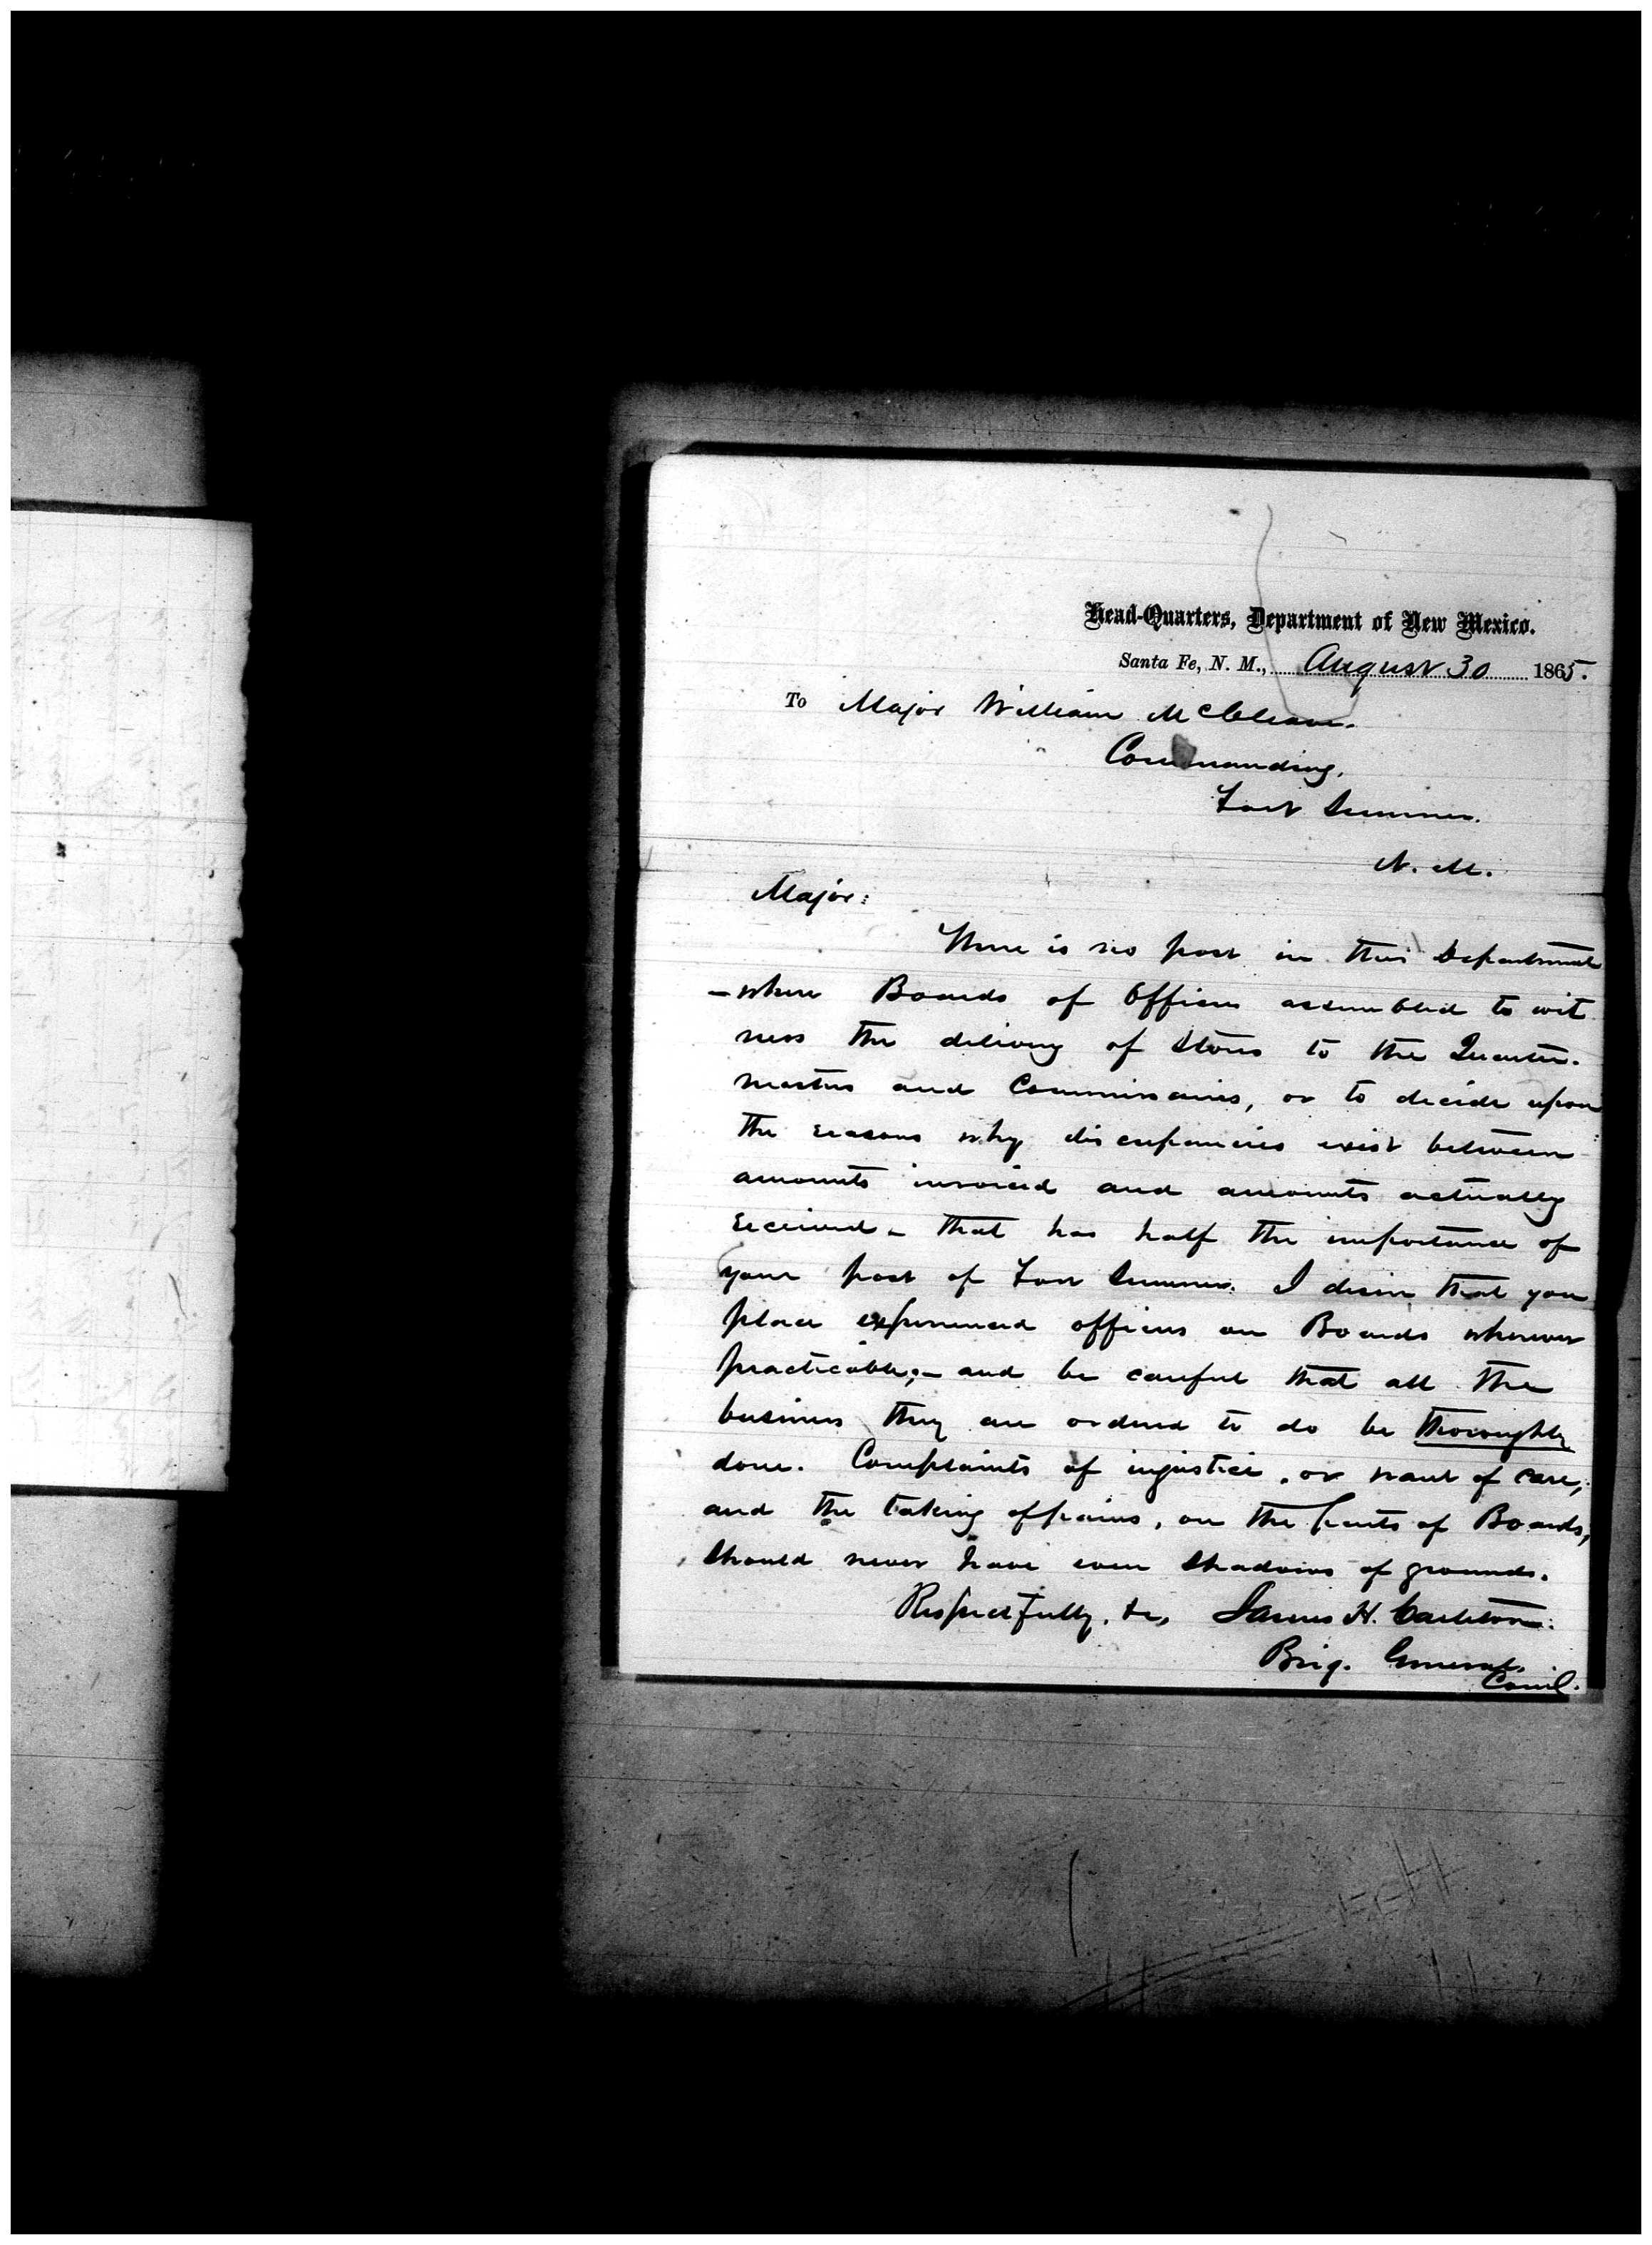 Head-Quarters, Department of New Mexico.
Santa Fe, N. M., August 30 1865.
To Major William McCleave.
Commanding,
Fort Sumner.
N. M.
Major:
There is no post in this Department
- where Boards of Officers assembled to wit
ness the delivery of Stores to the Quarter-
masters and Commissaries, or to decide upon
the reasons why discrepancies exist between
amounts invoiced and amounts actually
received - that has half the importance of
your post of Fort Sumner. I desire that you
place experienced officers on Boards wherever
practicable; - and be careful that all the
business they are ordered to do be thoroughly
done. Complaints of injustice, or want of care,
and the taking of pains, on the parts of Boards,
should never have even shadows of grounds.
Respectfully, &c, James H. Carleton.
Brig. General.
Comd.